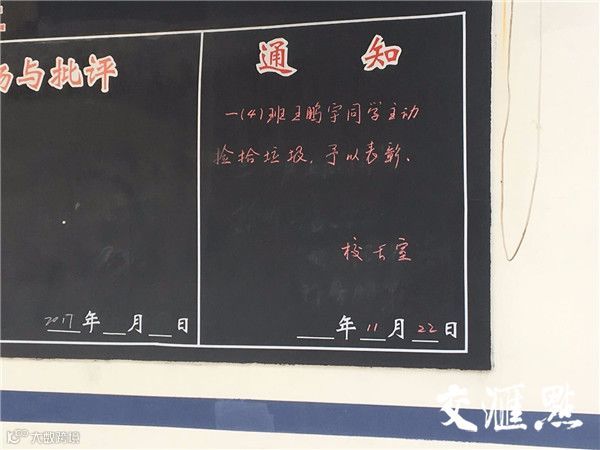 扬与批评
2017年__月__日
通知
一(4)班王鹏宇同学主动
捡拾垃圾，予以表彰.
校长室
__年11月22日
交汇点
大数跨境